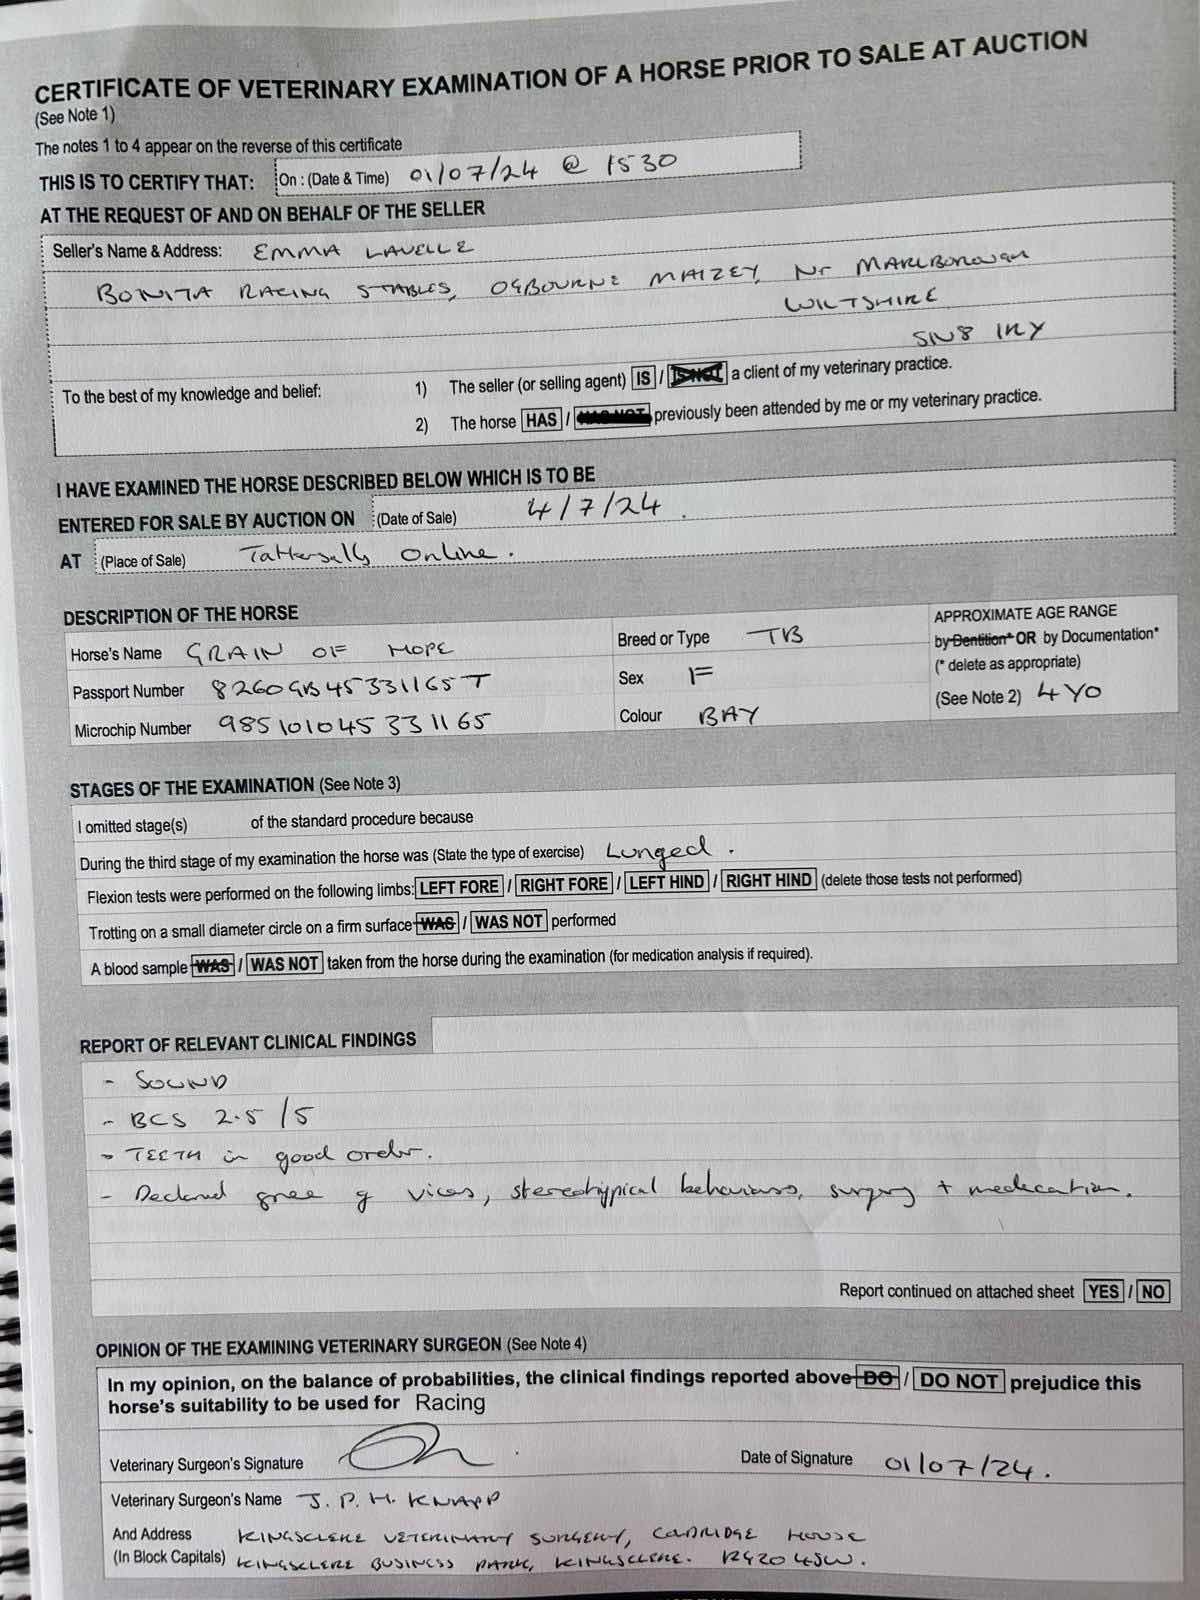 CERTIFICATE OF VETERINARY EXAMINATION OF A HORSE PRIOR TO SALE AT AUCTION
(See Note 1)
The notes 1 to 4 appear on the reverse of this certificate
THIS IS TO CERTIFY THAT: On : (Date & Time) 01/07/24 @ 1530
AT THE REQUEST OF AND ON BEHALF OF THE SELLER
Seller's Name & Address: EMMA LAVELLE
BONITA RACING STABLES, OGBOURNE MAIZEY, Nr MARLBOROUGH
WILTSHIRE
SN8 1RY
To the best of my knowledge and belief: 1) The seller (or selling agent) IS / IS NOT a client of my veterinary practice.
2) The horse HAS / HAS NOT previously been attended by me or my veterinary practice.
I HAVE EXAMINED THE HORSE DESCRIBED BELOW WHICH IS TO BE
ENTERED FOR SALE BY AUCTION ON (Date of Sale) 4/7/24.
AT (Place of Sale) Tattersalls Online.
DESCRIPTION OF THE HORSE
Horse's Name GRAIN OF HOPE
Passport Number 8260GB45331165T
Microchip Number 985101045331165
Breed or Type TB
Sex F
Colour BAY
APPROXIMATE AGE RANGE
by Dentition* OR by Documentation*
(* delete as appropriate)
(See Note 2) 4 YO
STAGES OF THE EXAMINATION (See Note 3)
I omitted stage(s) of the standard procedure because
During the third stage of my examination the horse was (State the type of exercise) Lunged.
Flexion tests were performed on the following limbs: LEFT FORE / RIGHT FORE / LEFT HIND / RIGHT HIND (delete those tests not performed)
Trotting on a small diameter circle on a firm surface WAS / WAS NOT performed
A blood sample WAS / WAS NOT taken from the horse during the examination (for medication analysis if required).
REPORT OF RELEVANT CLINICAL FINDINGS
- SOUND
- BCS 2.5/5
- TEETH in good order.
- Declared free of vices, stereotypical behaviours, surgery + medication.
Report continued on attached sheet YES / NO
OPINION OF THE EXAMINING VETERINARY SURGEON (See Note 4)
In my opinion, on the balance of probabilities, the clinical findings reported above DO / DO NOT prejudice this
horse's suitability to be used for Racing
Veterinary Surgeon's Signature
Date of Signature 01/07/24.
Veterinary Surgeon's Name J. P. H. KNAPP
And Address KINGSCLERE VETERINARY SURGERY, HOUSE
(In Block Capitals) KINGSCLERE BUSINESS PARK, KINGSCLERE. RG20 4SW.